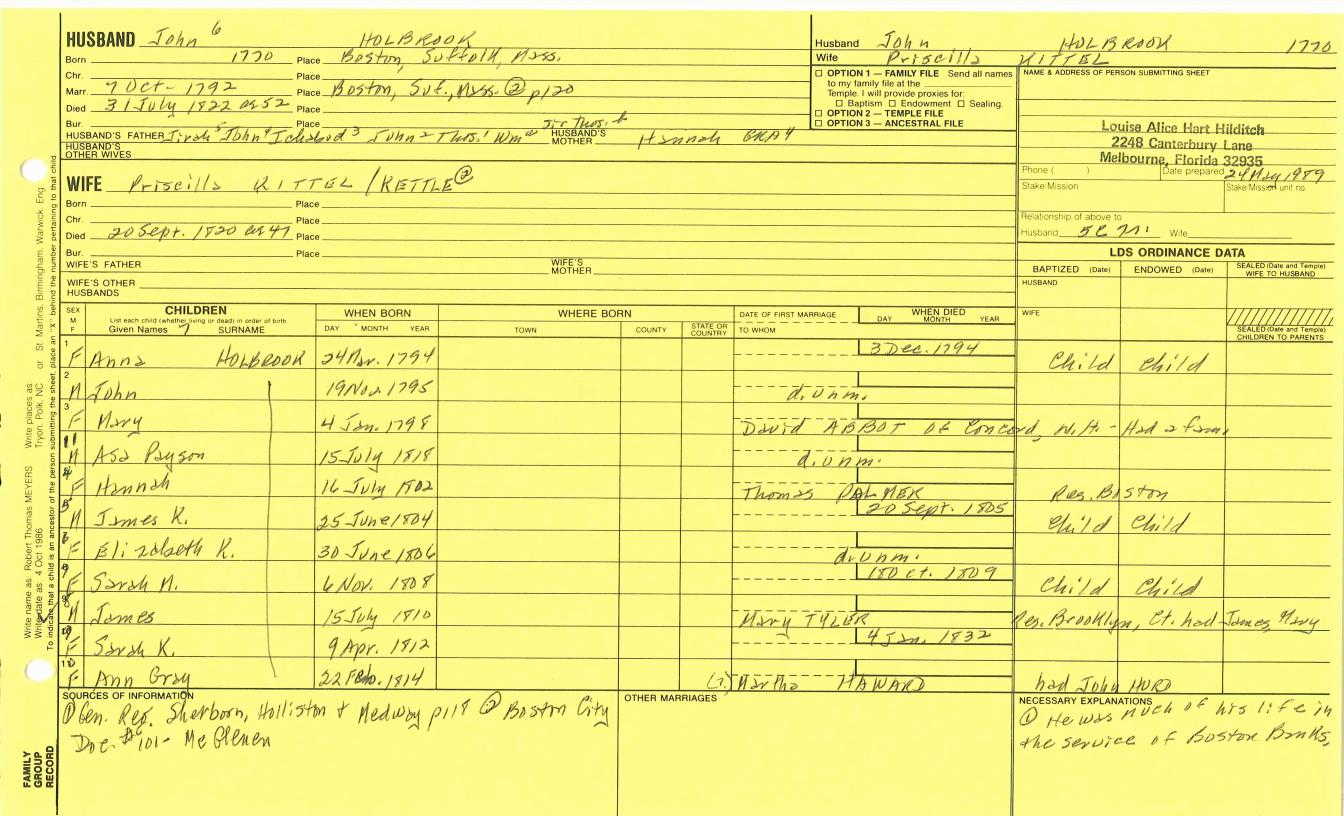 HUSBAND John 6 HOLBROOK
Born 1770 Place Boston, Suffolk, Mass.
Chr. Place
Marr. 7 Oct - 1792 Place Boston, Suf., Mass. ② p120
Died 31 July 1822 ae 52 Place
Bur. Place
HUSBAND'S FATHER John 4 Ichabod 3 John 2 Thos. 1 Wm HUSBAND'S MOTHER Hannah GRAY
Sir Thos.
HUSBAND'S OTHER WIVES
Husband John HOLBROOK 1770
Wife Priscilla KITTEL
OPTION 1 — FAMILY FILE Send all names
to my family file at the
Temple. I will provide proxies for:
Baptism Endowment Sealing.
OPTION 2 — TEMPLE FILE
OPTION 3 — ANCESTRAL FILE
NAME & ADDRESS OF PERSON SUBMITTING SHEET
Louise Alice Hart Hilditch
2248 Canterbury Lane
Melbourne, Florida 32935
Phone ( ) Date prepared 24 May 1989
Stake Mission Stake Mission unit no.
Relationship of above to
Husband Wife
WIFE Priscilla KITTEL / KETTLE ②
Born Place
Chr. Place
Died 20 Sept. 1820 ae 47 Place
Bur. Place
WIFE'S FATHER WIFE'S MOTHER
WIFE'S OTHER HUSBANDS
LDS ORDINANCE DATA
BAPTIZED (Date) ENDOWED (Date) SEALED (Date and Temple) WIFE TO HUSBAND
HUSBAND
WIFE
SEALED (Date and Temple) CHILDREN TO PARENTS
SEX M F CHILDREN List each child (whether living or dead) in order of birth. Given Names SURNAME
WHEN BORN DAY MONTH YEAR
WHERE BORN TOWN COUNTY STATE OR COUNTRY
DATE OF FIRST MARRIAGE TO WHOM
WHEN DIED DAY MONTH YEAR
1 F Anna HOLBROOK 24 Mar. 1794 3 Dec. 1794 Child Child
2 M John 19 Nov. 1795 d. unm.
3 F Mary 4 Jan. 1798 David ABBOT of Concord, N.H. - Had a fam.
11 M Asa Payson 15 July 1818 d. unm.
4 F Hannah 16 July 1802 Thomas PALMER Res. Boston
5 M James K. 25 June 1804 20 Sept. 1805 Child Child
6 F Elizabeth K. 30 June 1806 d. unm.
7 F Sarah M. 6 Nov. 1808 18 Oct. 1809 Child Child
8 M James 15 July 1810 Mary TYLER Res. Brooklyn, Ct. had James, Mary
9 F Sarah K. 9 Apr. 1812 4 Jan. 1832
10 F Ann Gray 22 Feb. 1814 Martha HAWARD had John HURD
SOURCES OF INFORMATION
① Gen. Reg. Sherborn, Holliston & Medway p118 ② Boston City
Doc. #101 - McGlenen
OTHER MARRIAGES
NECESSARY EXPLANATIONS
① He was much of his life in
the service of Boston Banks,
FAMILY GROUP RECORD
Write name as: Robert Thomas MEYERS Write places as: Tryon, Polk, NC or St. Martins, Birmingham, Warwick, Eng
Write date as: 4 Oct 1986
To indicate that a child is an ancestor of the person submitting the sheet, place an "X" behind the number pertaining to that child.